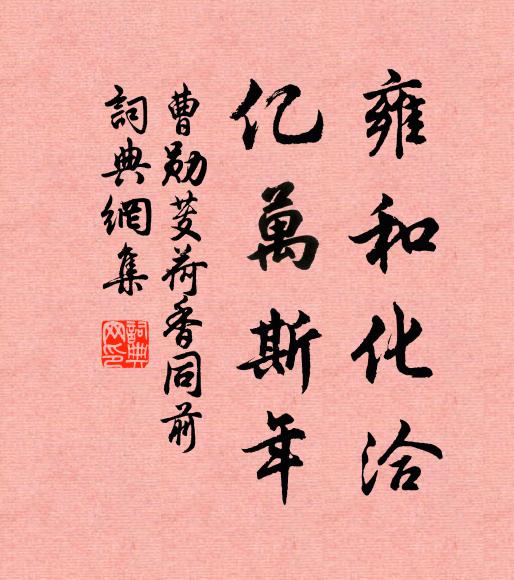 雍和化洽
亿萬斯年
曹勛芰荷香同前
詞典網集
詞典網印